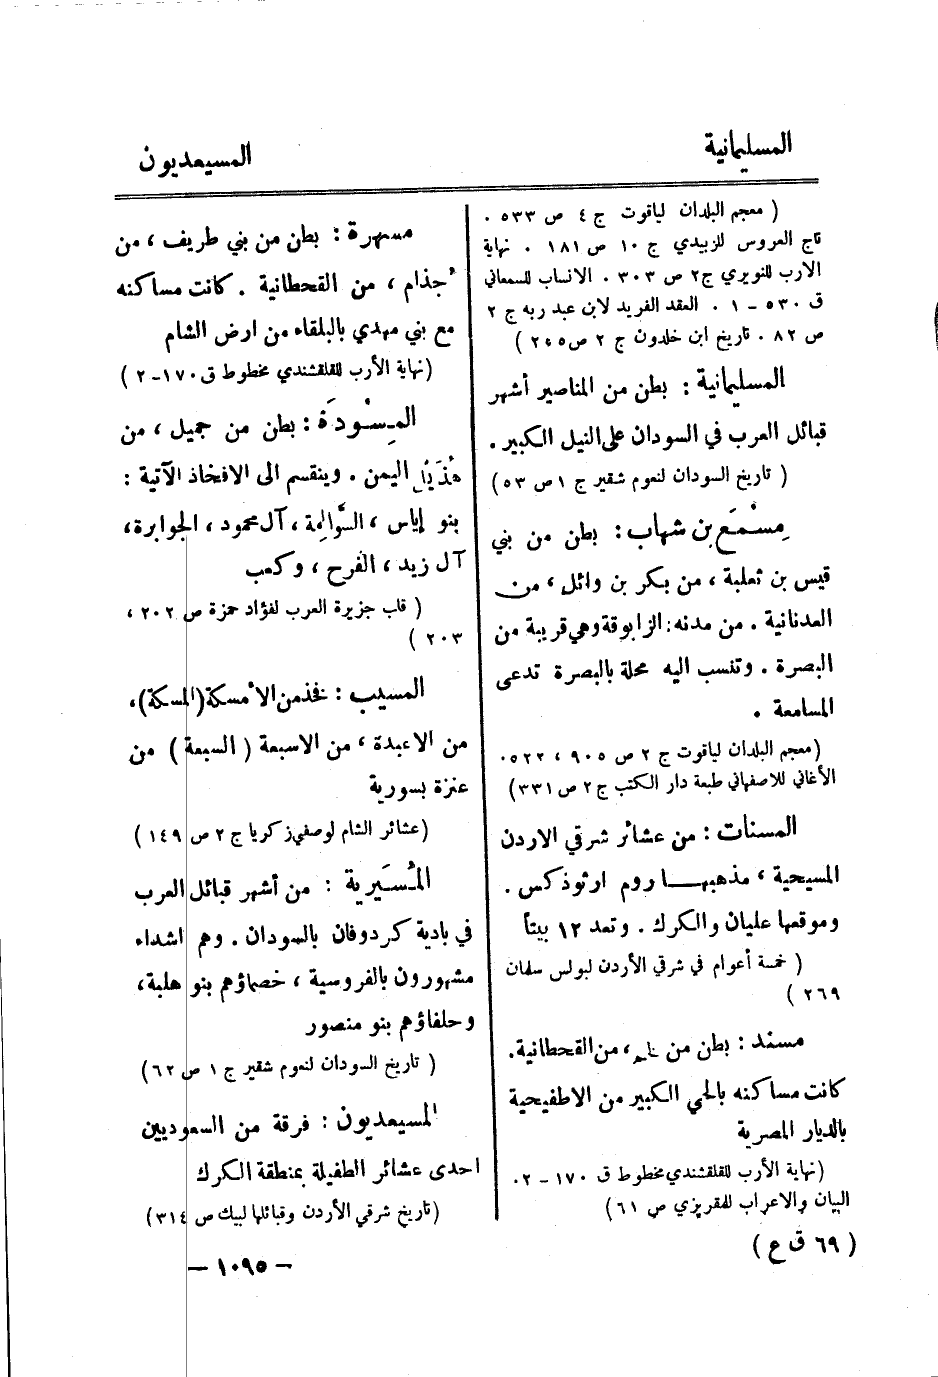 المسليمانية
المسيعديون
( معجم البلدان لياقوت ج ٤ ص ٥٣٣ .
تاج العروس للزبيدي ج ١٠ ص ١٨١ . نهاية
الارب للنويري ج٢ ص ٣٠٣ . الانساب للسمعاني
ق ٥٣٠ – ١ . العقد الفريد لابن عبد ربه ج ٢
ص ٨٢ . تاريخ ابن خلدون ج ٢ ص ٢٤٥ )
المسليمانية : بطن من المناصير أشهر
قبائل العرب في السودان على النيل الكبير .
( تاريخ السودان لنعوم شقير ج ١ ص ٥٣ )
مِسْمَع بن شهاب : بطن من بني
قيس بن ثعلبة ، من بكر بن وائل ، من
العدنانية . من مدنه : الزابوقة وهي قريبة من
البصرة . وتنسب اليه محلة بالبصرة تدعى
المسامعة .
(معجم البلدان لياقوت ج ٢ ص ٩٠٥ ، ٥٢٢ .
الأغاني للاصفهاني طبعة دار الكتب ج ٢ ص ٣٣١)
المسنات : من عشائر شرقي الاردن
المسيحية ، مذهبهـا روم ارثوذكس .
وموقعها عليان والكرك . وتعد ١٢ بيتاً
( خمسة أعوام في شرقي الأردن لبولس سلمان
٢٦٩ )
مسند : بطن من ، من القحطانية .
كانت مساكنه بالحي الكبير من الاطفيحية
بالديار المصرية
(نهاية الأرب للقلقشندي مخطوط ق ١٧٠ – ٢ .
البيان والاعراب للمقريزي ص ٦١)
( ٦٩ ق ع )
مسهرة : بطن من بني طريف ، من
جُذام ، من القحطانية . كانت مساكنه
مع بني مهدي بالبلقاء من ارض الشام
(نهاية الأرب للقلقشندي مخطوط ق ١٧٠–٢ )
المِسْودَة : بطن من جميل ، من
هُذَيْل اليمن . وينقسم الى الافخاذ الآتية :
بنو إياس ، السَّوالمة ، آل محمود ، الجوابرة ،
آل زيد ، الفرح ، وكعب
( قلب جزيرة العرب لفؤاد حمزة ص ٢٠٢ ،
٢٠٣ )
المسيب : فخذ من الأمسكة (المسكة) ،
من الاعبدة ، من الاسبعة ( السبعة ) من
عنزة بسورية
(عشائر الشام لوصفي زكريا ج ٢ ص ١٤٩ )
المُسَيرية : من أشهر قبائل العرب
في بادية كردوفان بالسودان . وهم اشداء
مشهورون بالفروسية ، خصماؤهم بنو هلبة ،
وحلفاؤهم بنو منصور
( تاريخ السودان لنعوم شقير ج ١ ص ٦٢)
المسيعديون : فرقة من السعوديين
احدى عشائر الطفيلة بمنطقة الكرك
(تاريخ شرقي الأردن وقبائلها لبيك ص ٣١٤)
– ١٠٩٥ –